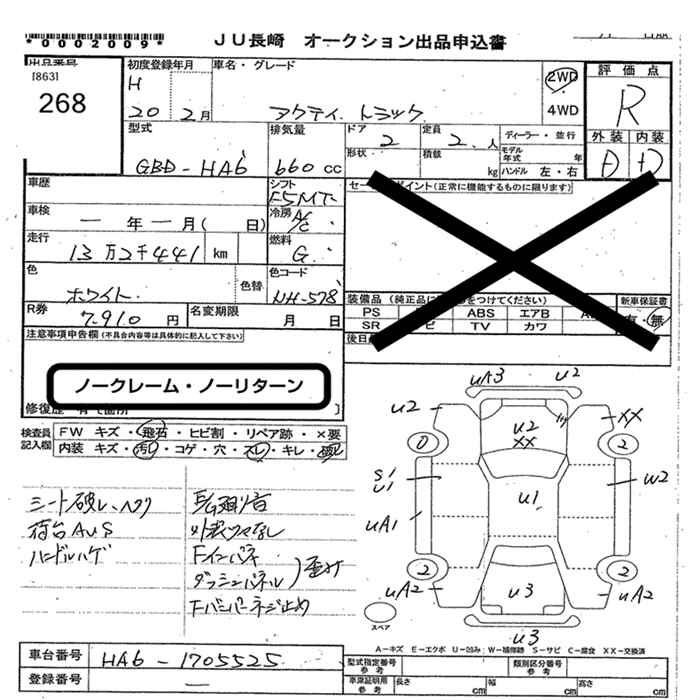 *0002009*
JU長崎 オークション出品申込書
出品番号
[863]
268
初度登録年月 車名・グレード
H
20 2月
アクティ トラック
2WD
4WD
評価点
R
型式 排気量
GBD-HA6 660cc
ドア 2 定員 2 人
形状 積載 kg
ディーラー・並行
モデル年式 年
ハンドル 左・右
外装 内装
D D
車歴 シフト F5MT
車検 一 年 一 月( 日) 冷房 A/C
走行 13万2千441 km 燃料 G
色 ホワイト 色替 色コード NH-578
R券 7.910円 名変期限 月 日
セールスポイント(正常に機能するものに限ります)
装備品(純正品に をつけてください) 新車保証書
PS ABS エアB
SR TV カワ
有・無
注意事項申告欄(不具合内容等は具体的に記入して下さい)
ノークレーム・ノーリターン
検査員記入欄
FW キズ・飛石・ヒビ割・リペア跡・×要
内装 キズ・汚レ・コゲ・穴・スレ・キレ・破レ
シート破レ、ヘタリ
荷台AUS
ハンドルハゲ
外装ツヤなし
Fインパネ
ダッシュパネル)歪み
Fバンパーネジ止め
UA3 U2
U2 XX
U2
XX
0 2
S1
U1
W2
U1
UA1
2 2
UA2 U3 UA2
U3
スペア
A-キズ E-エクボ U-凹み W-補修跡 S-サビ C-腐食 XX-交換済
車台番号 HA6-1705525
登録番号 一
型式指定番号 参考 類別区分番号 参考
車庫証明用 参考 長さ cm 幅 cm 高さ cm